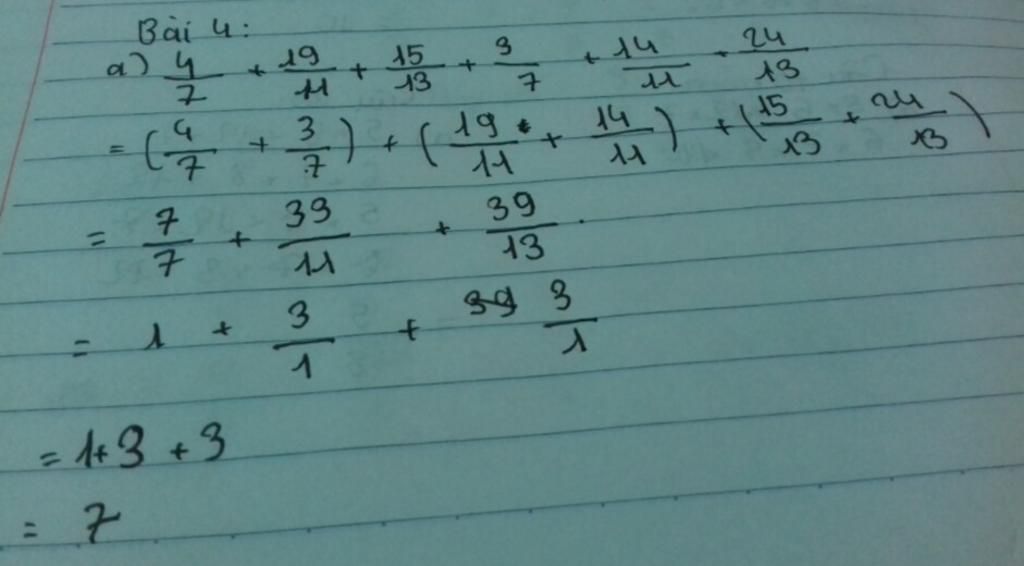 Bài 4:
a) 4/7 + 19/11 + 15/13 + 3/7 + 14/11 + 24/13
= (4/7 + 3/7) + (19/11 + 14/11) + (15/13 + 24/13)
= 7/7 + 33/11 + 39/13
= 1 + 3/1 + 3/1
= 1+3 + 3
= 7